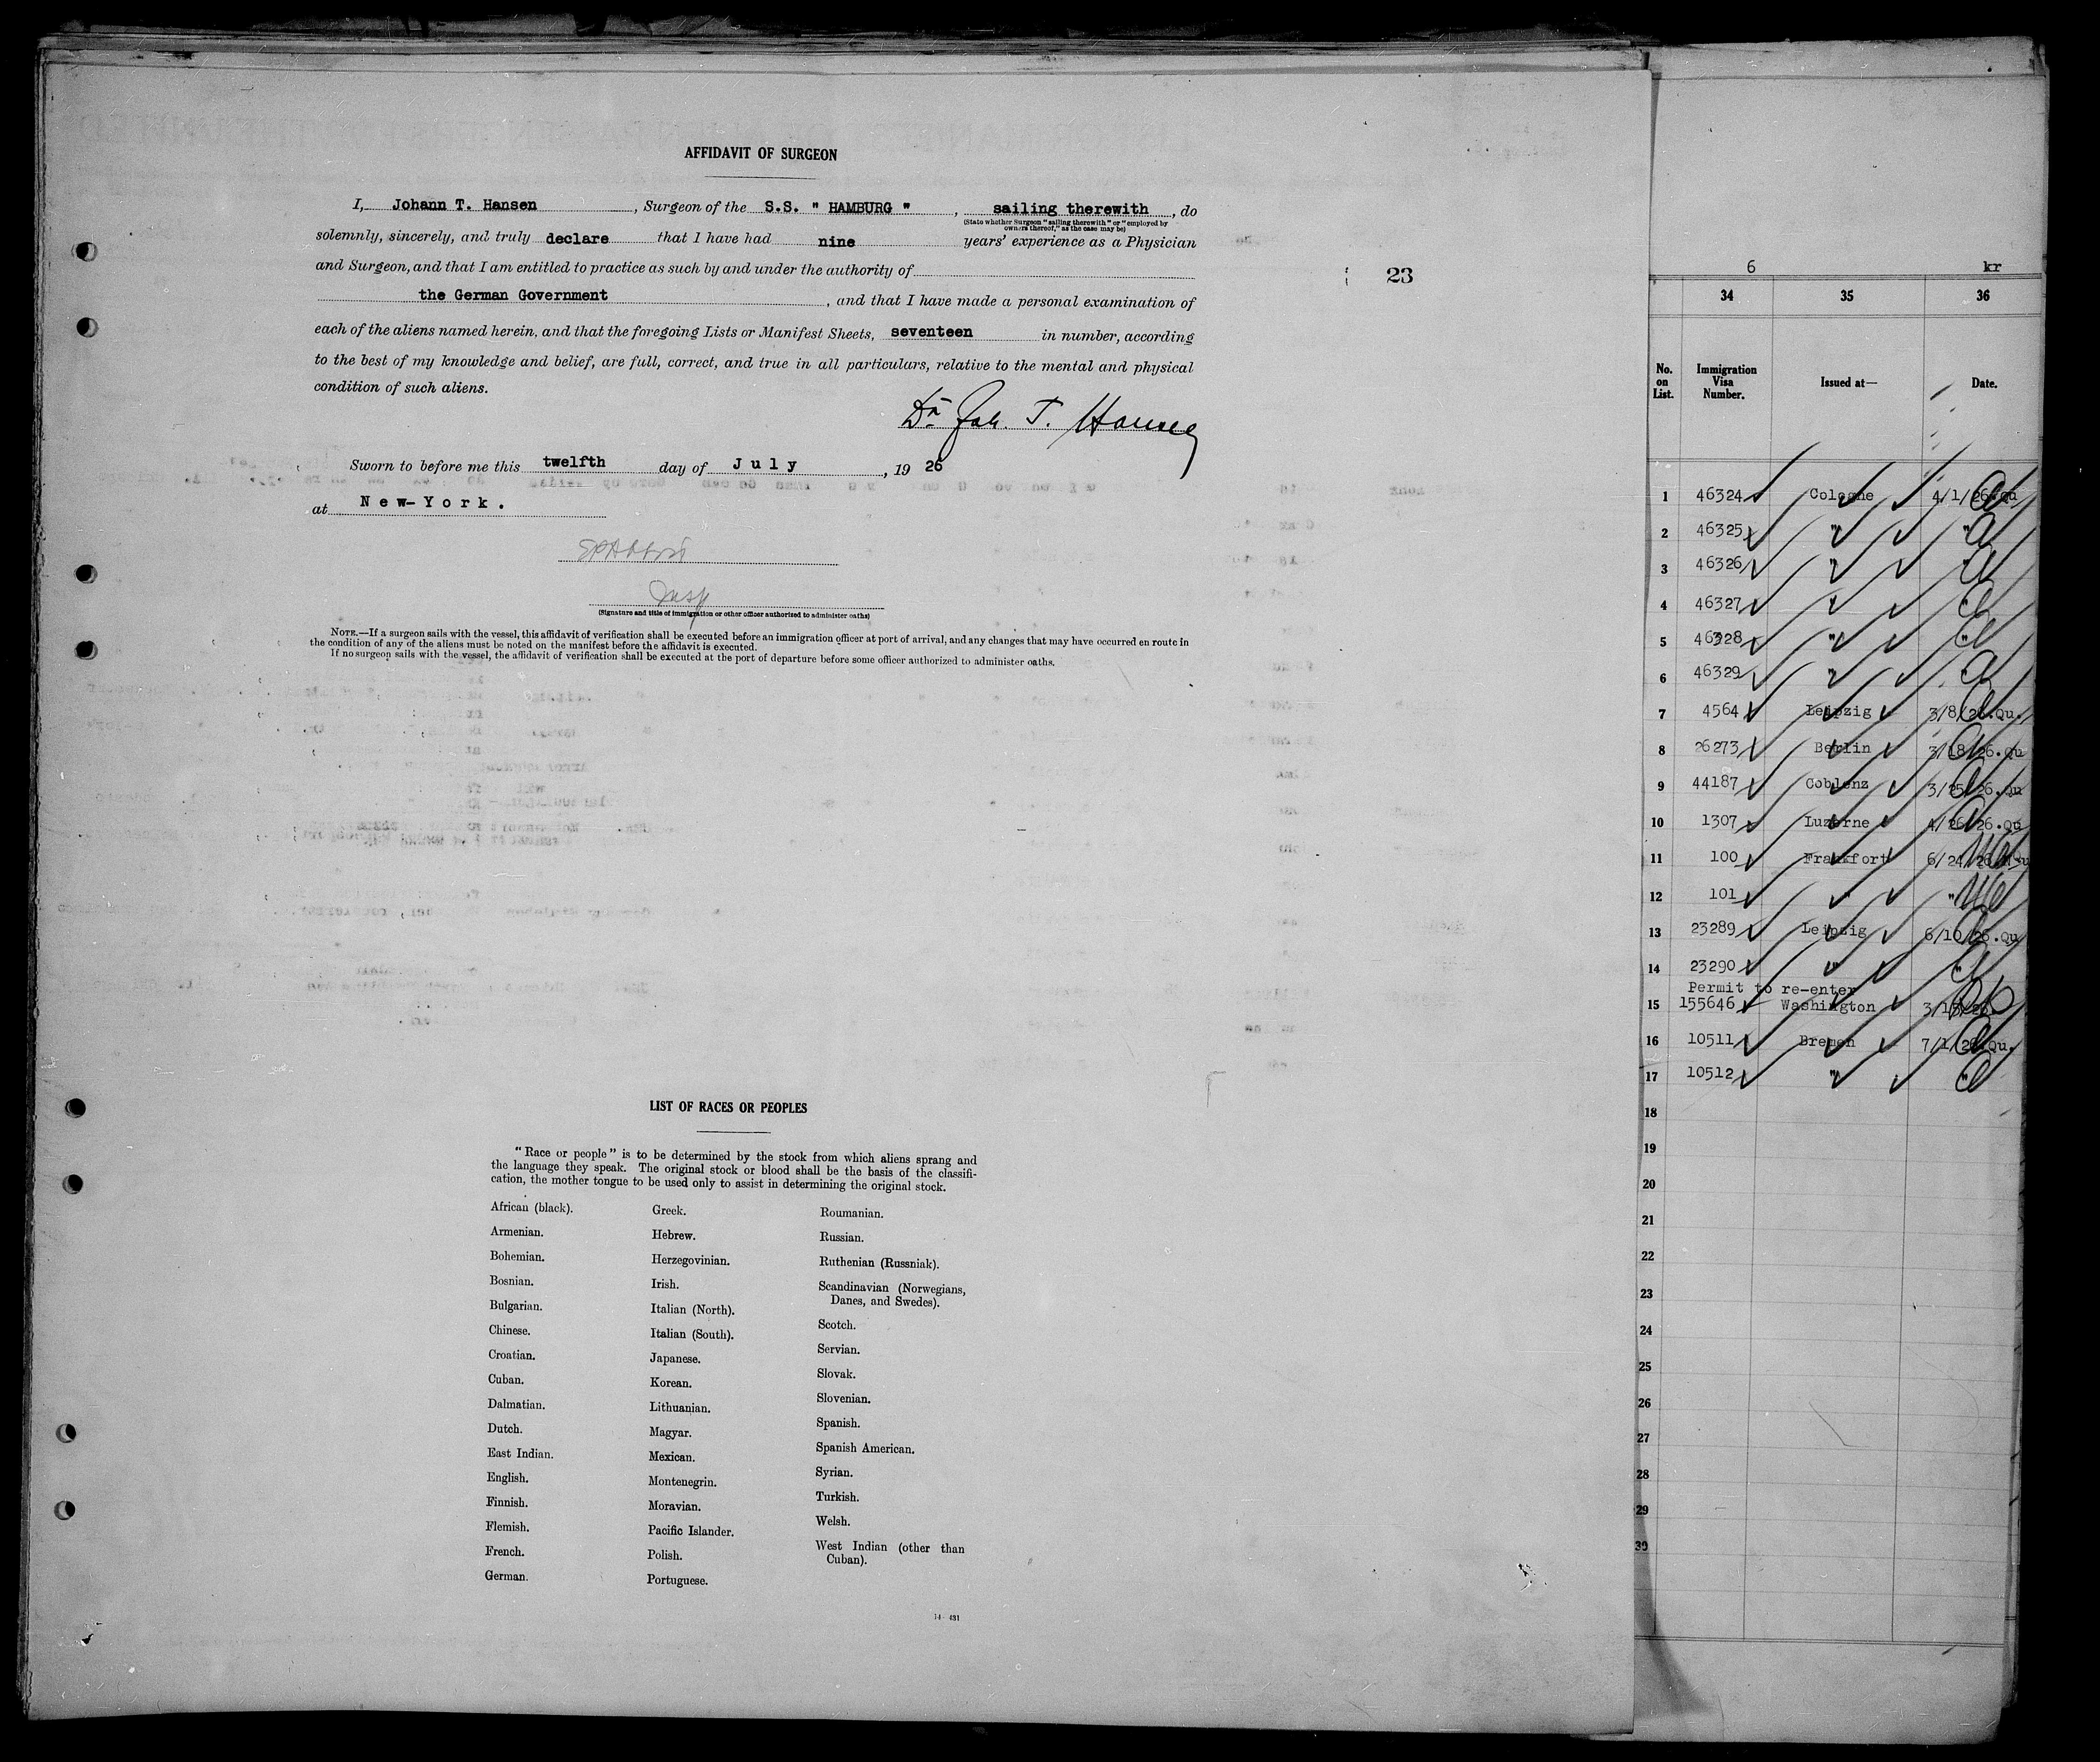 AFFIDAVIT OF SURGEON
I, Johann T. Hansen, Surgeon of the S.S. " HAMBURG ", sailing therewith, do
(State whether Surgeon "sailing therewith" or "employed by
owners thereof," as the case may be)
solemnly, sincerely, and truly declare that I have had nine years' experience as a Physician
and Surgeon, and that I am entitled to practice as such by and under the authority of
the German Government, and that I have made a personal examination of
each of the aliens named herein, and that the foregoing Lists or Manifest Sheets, seventeen in number, according
to the best of my knowledge and belief, are full, correct, and true in all particulars, relative to the mental and physical
condition of such aliens.
Dr. Joh. T. Hansen
Sworn to before me this twelfth day of July, 1926
at New-York.
Insp
(Signature and title of immigration or other officer authorized to administer oaths)
NOTE.—If a surgeon sails with the vessel, this affidavit of verification shall be executed before an immigration officer at port of arrival, and any changes that may have occurred en route in
the condition of any of the aliens must be noted on the manifest before the affidavit is executed.
If no surgeon sails with the vessel, the affidavit of verification shall be executed at the port of departure before some officer authorized to administer oaths.
23
LIST OF RACES OR PEOPLES
"Race or people" is to be determined by the stock from which aliens sprang and
the language they speak. The original stock or blood shall be the basis of the classifi-
cation, the mother tongue to be used only to assist in determining the original stock.
African (black).
Armenian.
Bohemian.
Bosnian.
Bulgarian.
Chinese.
Croatian.
Cuban.
Dalmatian.
Dutch.
East Indian.
English.
Finnish.
Flemish.
French.
German.
Greek.
Hebrew.
Herzegovinian.
Irish.
Italian (North).
Italian (South).
Japanese.
Korean.
Lithuanian.
Magyar.
Mexican.
Montenegrin.
Moravian.
Pacific Islander.
Polish.
Portuguese.
Roumanian.
Russian.
Ruthenian (Russniak).
Scandinavian (Norwegians,
Danes, and Swedes).
Scotch.
Servian.
Slovak.
Slovenian.
Spanish.
Spanish American.
Syrian.
Turkish.
Welsh.
West Indian (other than
Cuban).
14—431
6 kr
34 35 36
No. on List. Immigration Visa Number. Issued at— Date.
1 46324 Cologne 4/1/26.Qu
2 46325 " "
3 46326 " "
4 46327 " "
5 46328 " "
6 46329 " "
7 4564 Leipzig 3/8/26.Qu.
8 26273 Berlin 3/18/26.Qu
9 44187 Coblenz 3/25/26.Qu
10 1307 Luzerne 4/26/26.Qu
11 100 Frankfort 6/24/26
12 101 " "
13 23289 Leipzig 6/10/26.Qu
14 23290 " "
Permit to re-enter
15 155646 Washington 3/13/26
16 10511 Bremen 7/1/26.Qu.
17 10512 " "
18
19
20
21
22
23
24
25
26
27
28
29
30